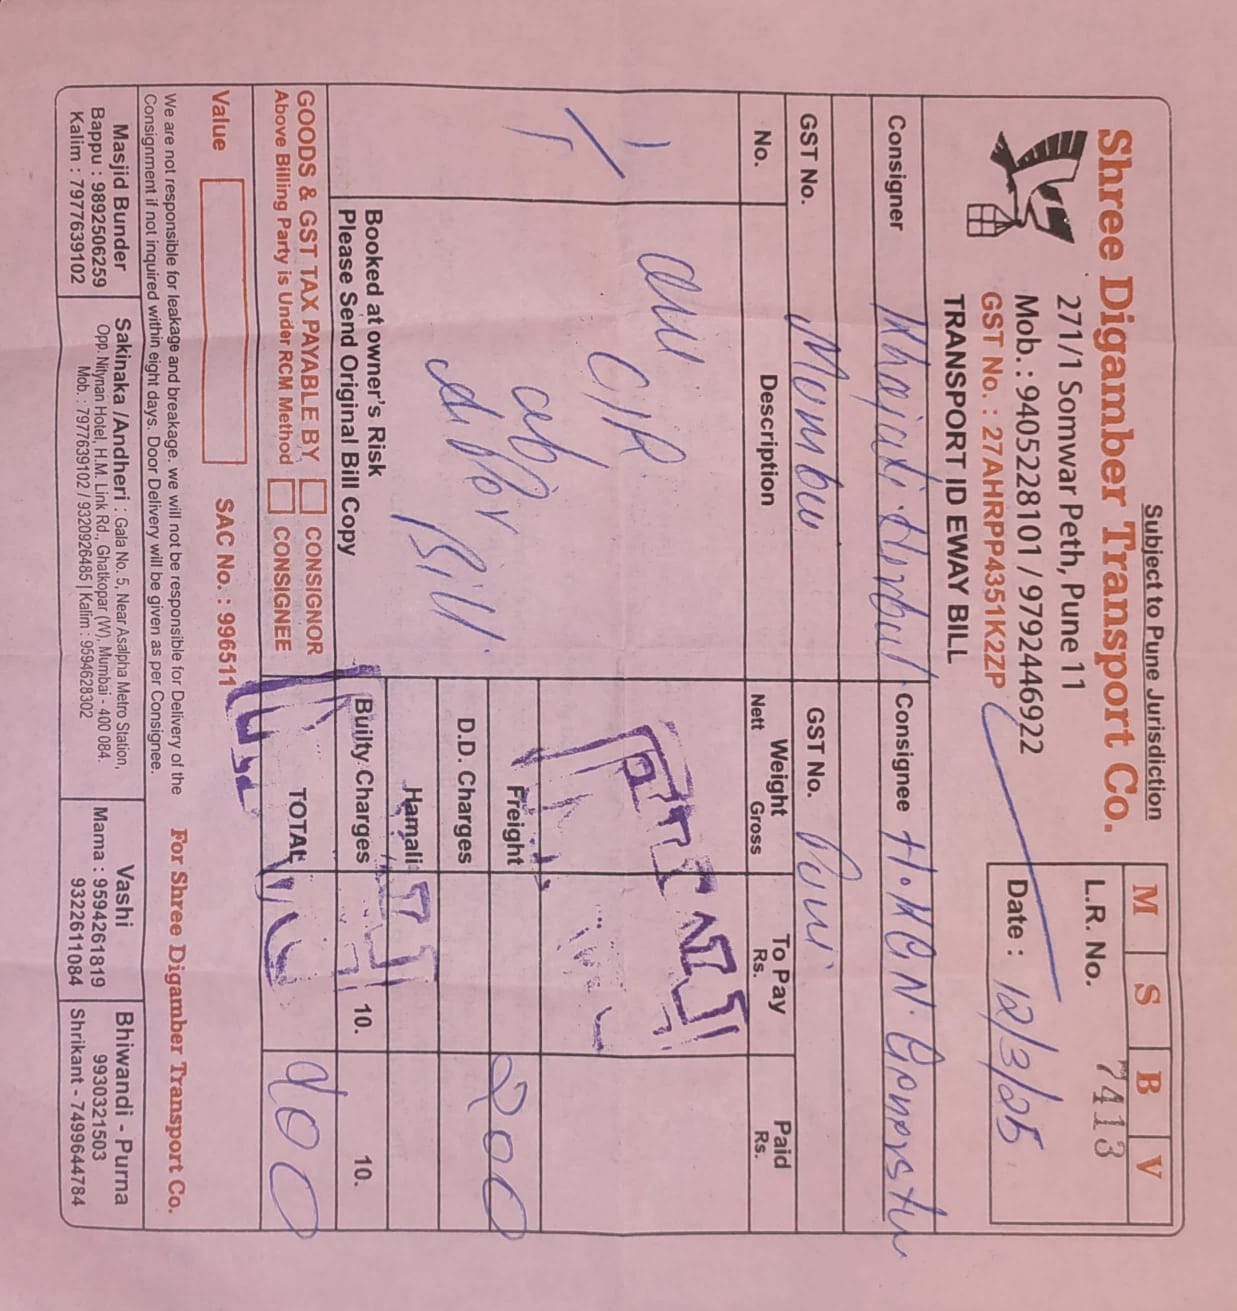 Subject to Pune Jurisdiction
Shree Digamber Transport Co.
271/1 Somwar Peth, Pune 11
Mob. : 9405228101 / 9792446922
GST No. : 27AHRPP4351K2ZP
TRANSPORT ID EWAY BILL
M S B V
L.R. No. 7413
Date : 12/3/25
Consigner
Consignee H.K.G.N.
GST No. Mumbai
GST No.
No.
Description
Weight
Nett Gross
To Pay
Rs.
Paid
Rs.
1
Bill
Freight 200
D.D. Charges
Hamali
Builty Charges 10. 10.
TOTAL 200
Booked at owner's Risk
Please Send Original Bill Copy
GOODS & GST TAX PAYABLE BY CONSIGNOR
Above Billing Party is Under RCM Method CONSIGNEE
Value
SAC No. : 996511
We are not responsible for leakage and breakage. we will not be responsible for Delivery of the
Consignment if not inquired within eight days. Door Delivery will be given as per Consignee.
For Shree Digamber Transport Co.
Masjid Bunder
Bappu : 9892506259
Kalim : 7977639102
Sakinaka /Andheri : Gala No. 5, Near Asalpha Metro Station,
Opp. Nitynan Hotel, H.M. Link Rd., Ghatkopar (W), Mumbai - 400 084.
Mob. : 7977639102 / 9320926485 | Kalim : 9594628302
Vashi
Mama : 9594261819
9322611084
Bhiwandi - Purna
9930321503
Shrikant - 7499644784